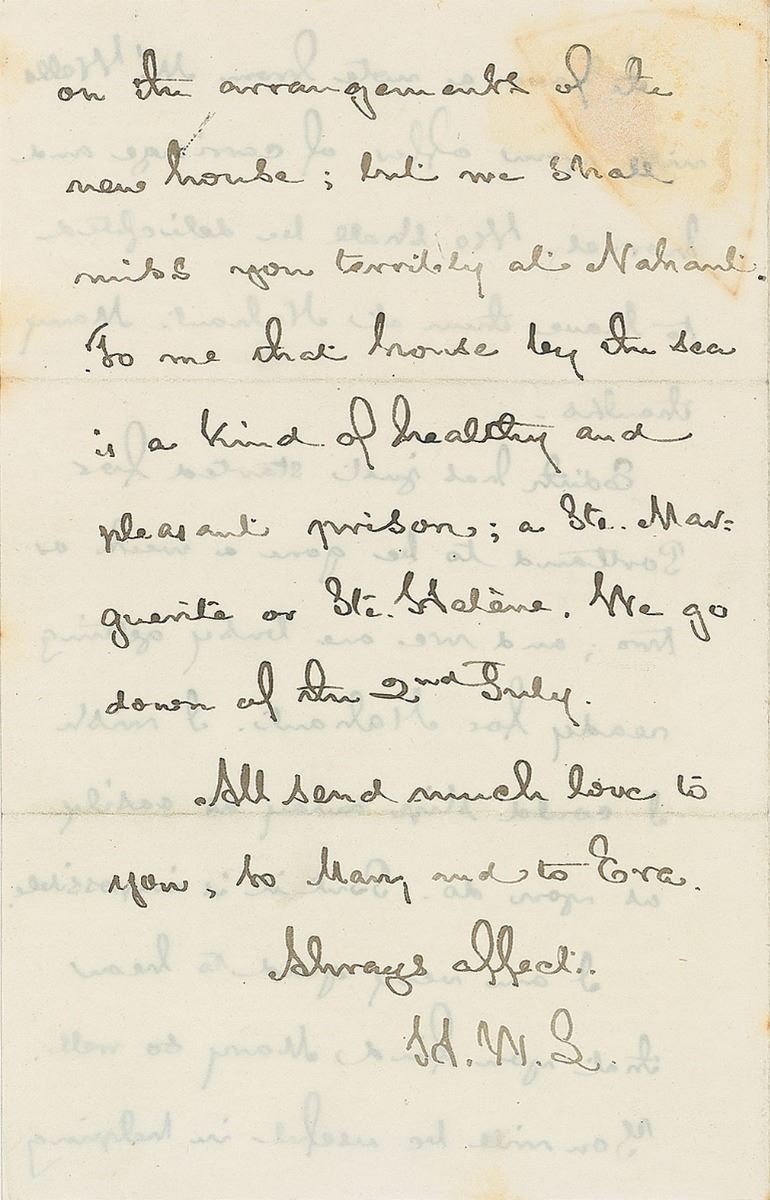 on the arrangements of the
new house; but we shall
miss you terribly at Nahant.
To me that house by the sea
is a kind of healthy and
pleasant prison; a Ste. Mar=
guerite or Ste. Helène. We go
down of the 2nd July.
All send much love to
you, to Mary and to Eva.
Always affect..
H. W. L.